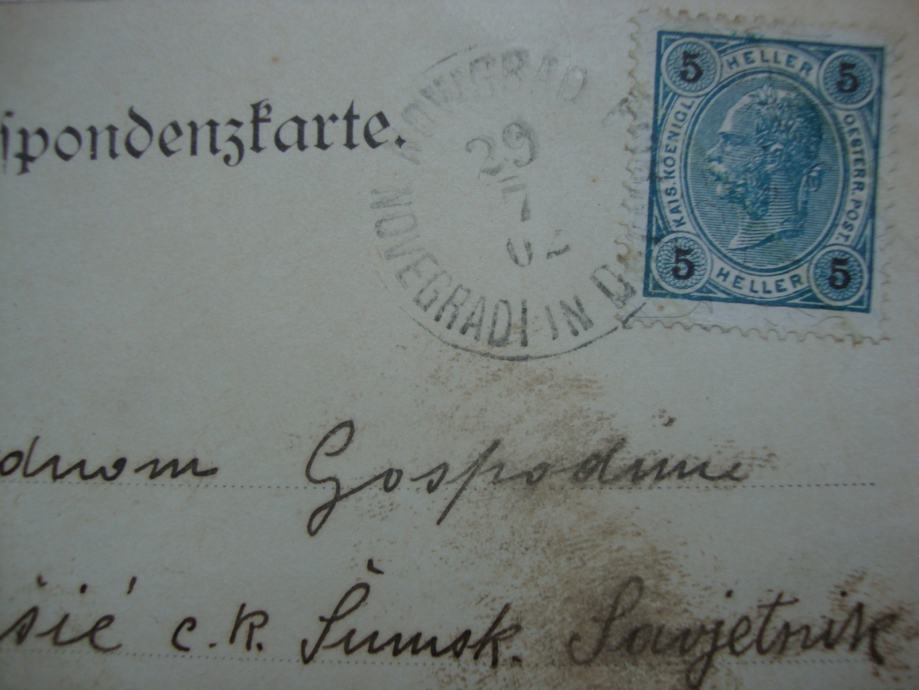 spondenzkarte.
NOWIGRAD
NOVEGRADI IN D
29
7
02
5 HELLER 5
KAIS. KOENIGL.
OESTERR. POST.
5 HELLER 5
dnom Gospodinu
šić c.k. Šumsk. Savjetnik